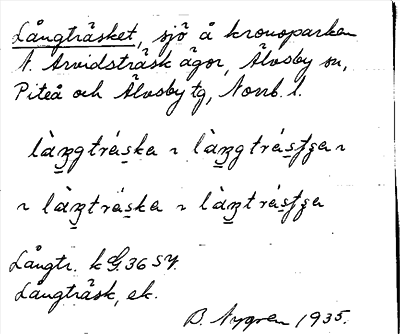 Långträsket, sjö å kronoparken
N. Arvidsträsk ägor, Älvsby sn,
Piteå och Älvsby tg, Norrb. l.
làŋgtráska ~ làŋgtrásʃʒa ~
~ làŋtráska ~ làŋtrásʃʒa
Långtr. k G. 36 SV.
Långträsk, ek.
B. Nygren 1935.